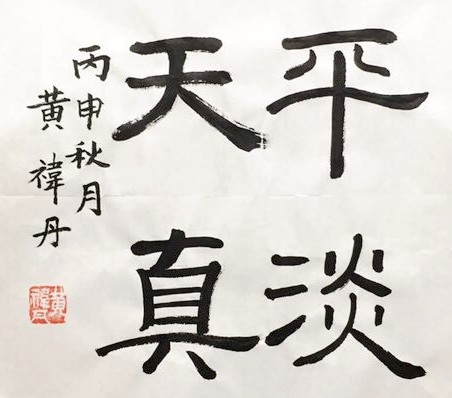 平淡
天真
丙申秋月
黄禕丹
黄禕丹